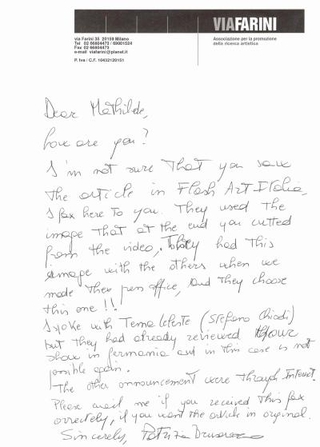 VIAFARINI
via Farini 35 20159 Milano
Tel 02-66804473 / 69001524
Fax 02-66804473
e-mail viafarini@planet.it
P. Iva / C.F. 10422120151
Associazione per la promozione
della ricerca artistica
Dear Mathilde,
how are you?
I'm not sure that you saw
the article in Flash Art Italia,
I fax here to you. They used the
image that at the end you cutted
from the video, they had this
image with the others when we
made the press office, and they choose
this one!!
I spoke with Tema Celeste (Stefano Chiodi)
but they had already reviewed your
show in germania and in this case is not
possible again.
The other announcement were through Internet.
Please mail me if you received this fax
correctely, if you want the article in original.
Sincerely, Patrizia